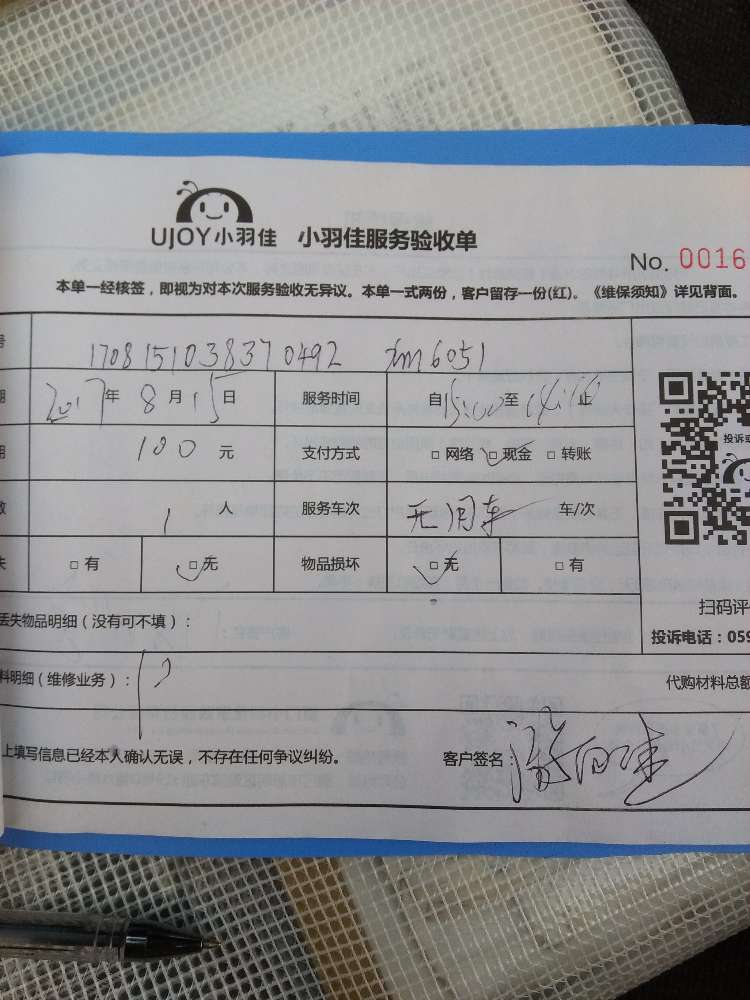 UJOY小羽佳 小羽佳服务验收单
No. 0016
本单一经核签，即视为对本次服务验收无异议。本单一式两份，客户留存一份(红)。《维保须知》详见背面。
号 1708151038370492 xm6051
期 2017年 8月 15日 服务时间 自15:00至 止
用 100 元 支付方式 □网络 □现金 □转账
数 1 人 服务车次 无用车 车/次
失 □有 □无 物品损坏 □无 □有
投诉或
扫码评
丢失物品明细（没有可不填）：
投诉电话：059
料明细（维修业务）：
代购材料总额
上填写信息已经本人确认无误，不存在任何争议纠纷。 客户签名：